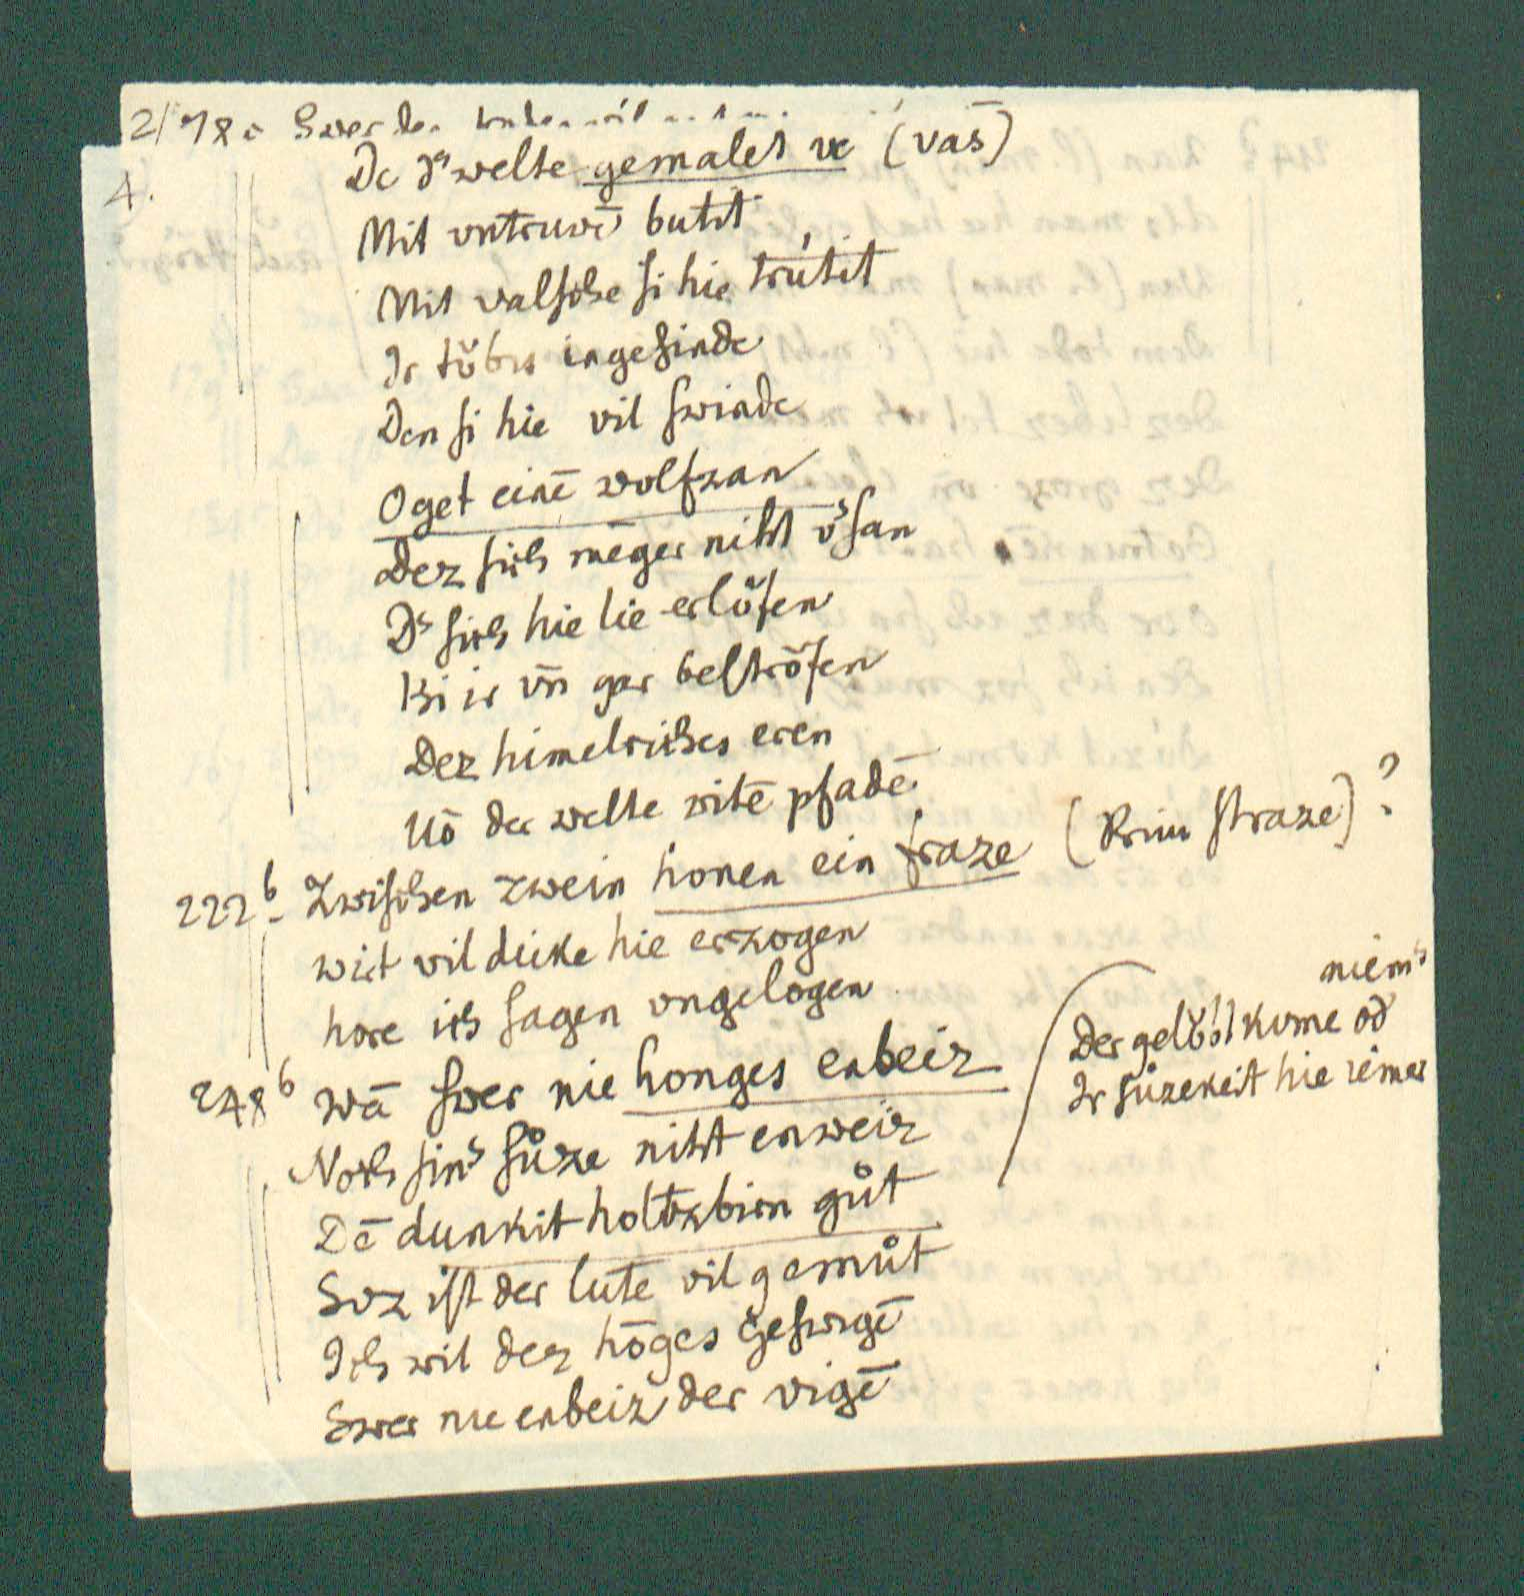 21 78a Swer den
4. De ds welte gemalet vc (vās)
Mit vntruwē butit
Mit valsche si hie trútit
Ir tǒbis ingesinde
Den si hie vil swinde
Oget einē wolfzan
Dez sich mēger niht vsan
Ds sich hie lie erlǒsen
Bi ir vn̄ gar bestrǒfen
Dez himelriches eren
Uō der welte witē pfadē
222b Zwischen zwein honen ein fraze (Prim straze)?
wirt vil dicke hie erzogen
hore ich sagen vngelogen
248b wā swer nie honges enbeiz
Noch sins sůze niht enweiz
Dē dunkit holtzbirn gůt
Soz ist der lute vil gemůt
Ich wil dez hōges geswigē
Swer nie enbeiz der vigē
niems
Der gelǒbt kvme od
Ir sůzekeit hie iemer